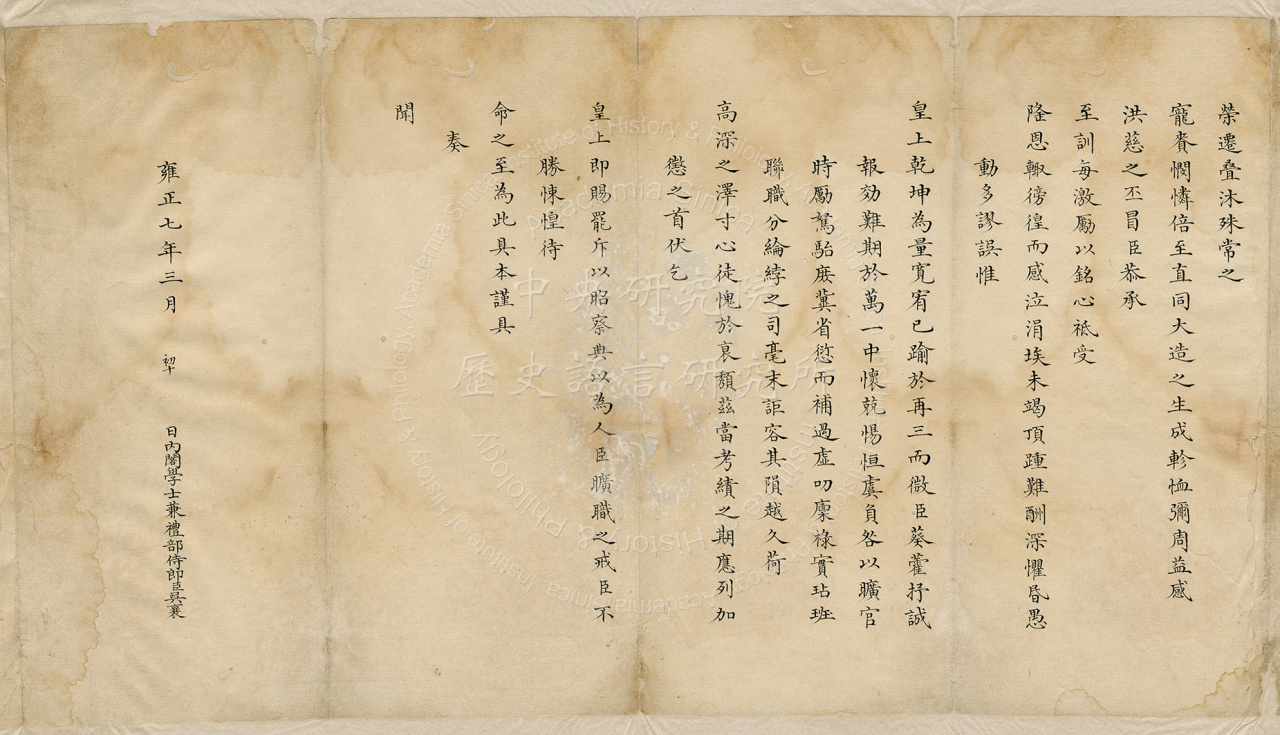 榮遷叠沐殊常之
寵賚憫憐倍至直同大造之生成軫恤彌周益感
洪慈之丕冒臣恭承
至訓每激勵以銘心祗受
隆恩輙徬徨而感泣涓埃未竭頂踵難酬深懼昏愚
動多謬誤惟
皇上乾坤為量寬宥已踰於再三而微臣葵藿抒誠
報効難期於萬一中懷兢惕恒虞負咎以曠官
時勵駑駘庻兾省愆而補過虛叨廪祿實玷班
聯職分綸綍之司毫末詎容其隕越久荷
高深之澤寸心徒愧於衰頽茲當考績之期應列加
懲之首伏乞
皇上即賜罷斥以昭察典以為人臣曠職之戒臣不
勝悚惶待
命之至為此具本謹具
奏
聞
雍正七年三月 初 日內閣學士兼禮部侍郎臣吳襄
中央研究院
歷史語言研究所
Institute of History & Philology Academia Sinica